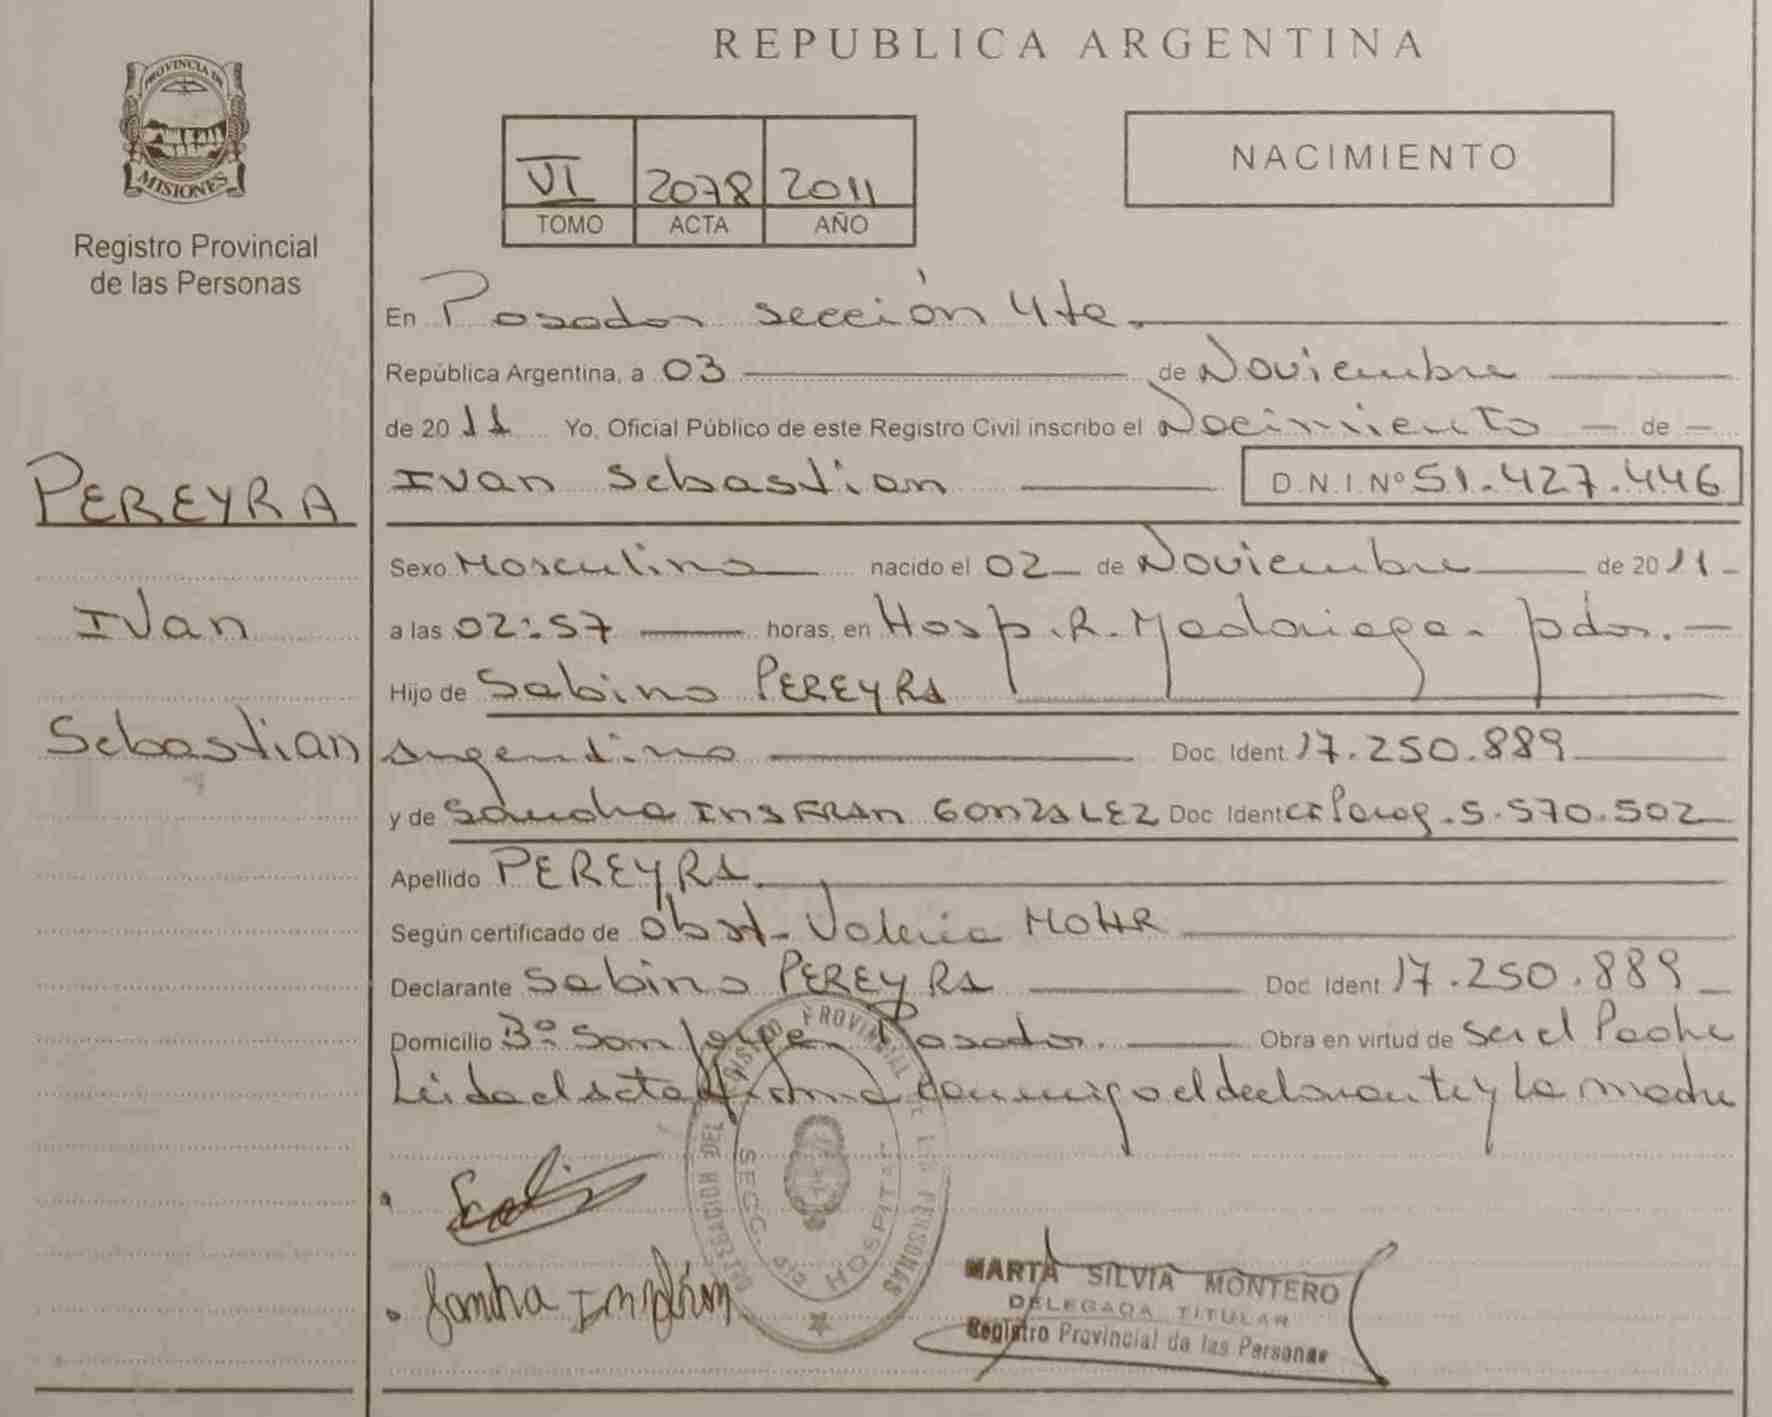 REPUBLICA ARGENTINA
PROVINCIA DE
MISIONES
Registro Provincial
de las Personas
VI 2078 2011
TOMO ACTA AÑO
NACIMIENTO
PEREYRA
Ivan
Sebastian
En Posadas sección 4ta.
República Argentina, a 03 de Noviembre
de 2011 Yo, Oficial Público de este Registro Civil inscribo el Nacimiento de
Ivan Sebastian D.N.I. Nº 51.427.446
Sexo Masculino nacido el 02 de Noviembre de 2011
a las 02:57 horas, en Hosp. R. Madariaga - pdas.
Hijo de Sabino PEREYRA
Argentino Doc. Ident. 17.250.889
y de Sandra INSFRAN GONZALEZ Doc. Ident CI Parag. 5.570.502
Apellido PEREYRA
Según certificado de Obst. Valeria MOHR
Declarante Sabino PEREYRA Doc. Ident 17.250.889
Domicilio Bº San Posadas. Obra en virtud de ser el Padre
Leida el acta firma conmigo el declarante y la madre
PROVINCIAL DE LAS PERSONAS
SECC. HOSPITAL
MARTA SILVIA MONTERO
DELEGADA TITULAR
Registro Provincial de las Personas